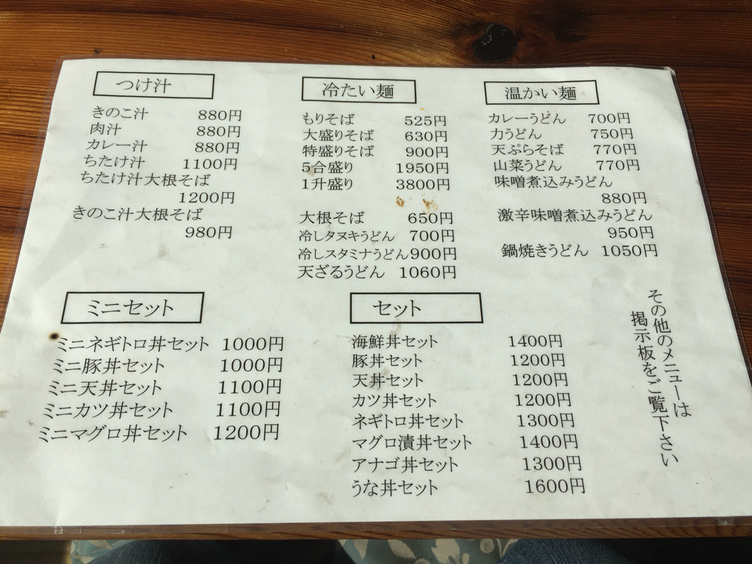 つけ汁
きのこ汁 880円
肉汁 880円
カレー汁 880円
ちたけ汁 1100円
ちたけ汁大根そば
1200円
きのこ汁大根そば
980円
冷たい麺
もりそば 525円
大盛りそば 630円
特盛りそば 900円
5合盛り 1950円
1升盛り 3800円
大根そば 650円
冷しタヌキうどん 700円
冷しスタミナうどん900円
天ざるうどん 1060円
温かい麺
カレーうどん 700円
力うどん 750円
天ぷらそば 770円
山菜うどん 770円
味噌煮込みうどん
880円
激辛味噌煮込みうどん
950円
鍋焼きうどん 1050円
ミニセット
ミニネギトロ丼セット 1000円
ミニ豚丼セット 1000円
ミニ天丼セット 1100円
ミニカツ丼セット 1100円
ミニマグロ丼セット 1200円
セット
海鮮丼セット 1400円
豚丼セット 1200円
天丼セット 1200円
カツ丼セット 1200円
ネギトロ丼セット 1300円
マグロ漬丼セット 1400円
アナゴ丼セット 1300円
うな丼セット 1600円
その他のメニューは
掲示板をご覧下さい